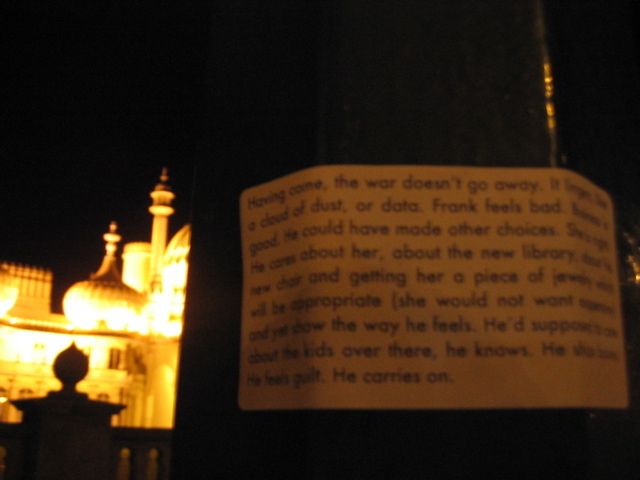 Having come, the war doesn't go away. It lingers, like
a cloud of dust, or data. Frank feels bad. Business is
good. He could have made other choices. She is right.
He cares about her, about the new library, about his
new chair and getting her a piece of jewelry which
will be appropriate (she would not want
and yet show the way he feels. He'd
about the kids over there, he knows. He
He feels guilt. He carries on.